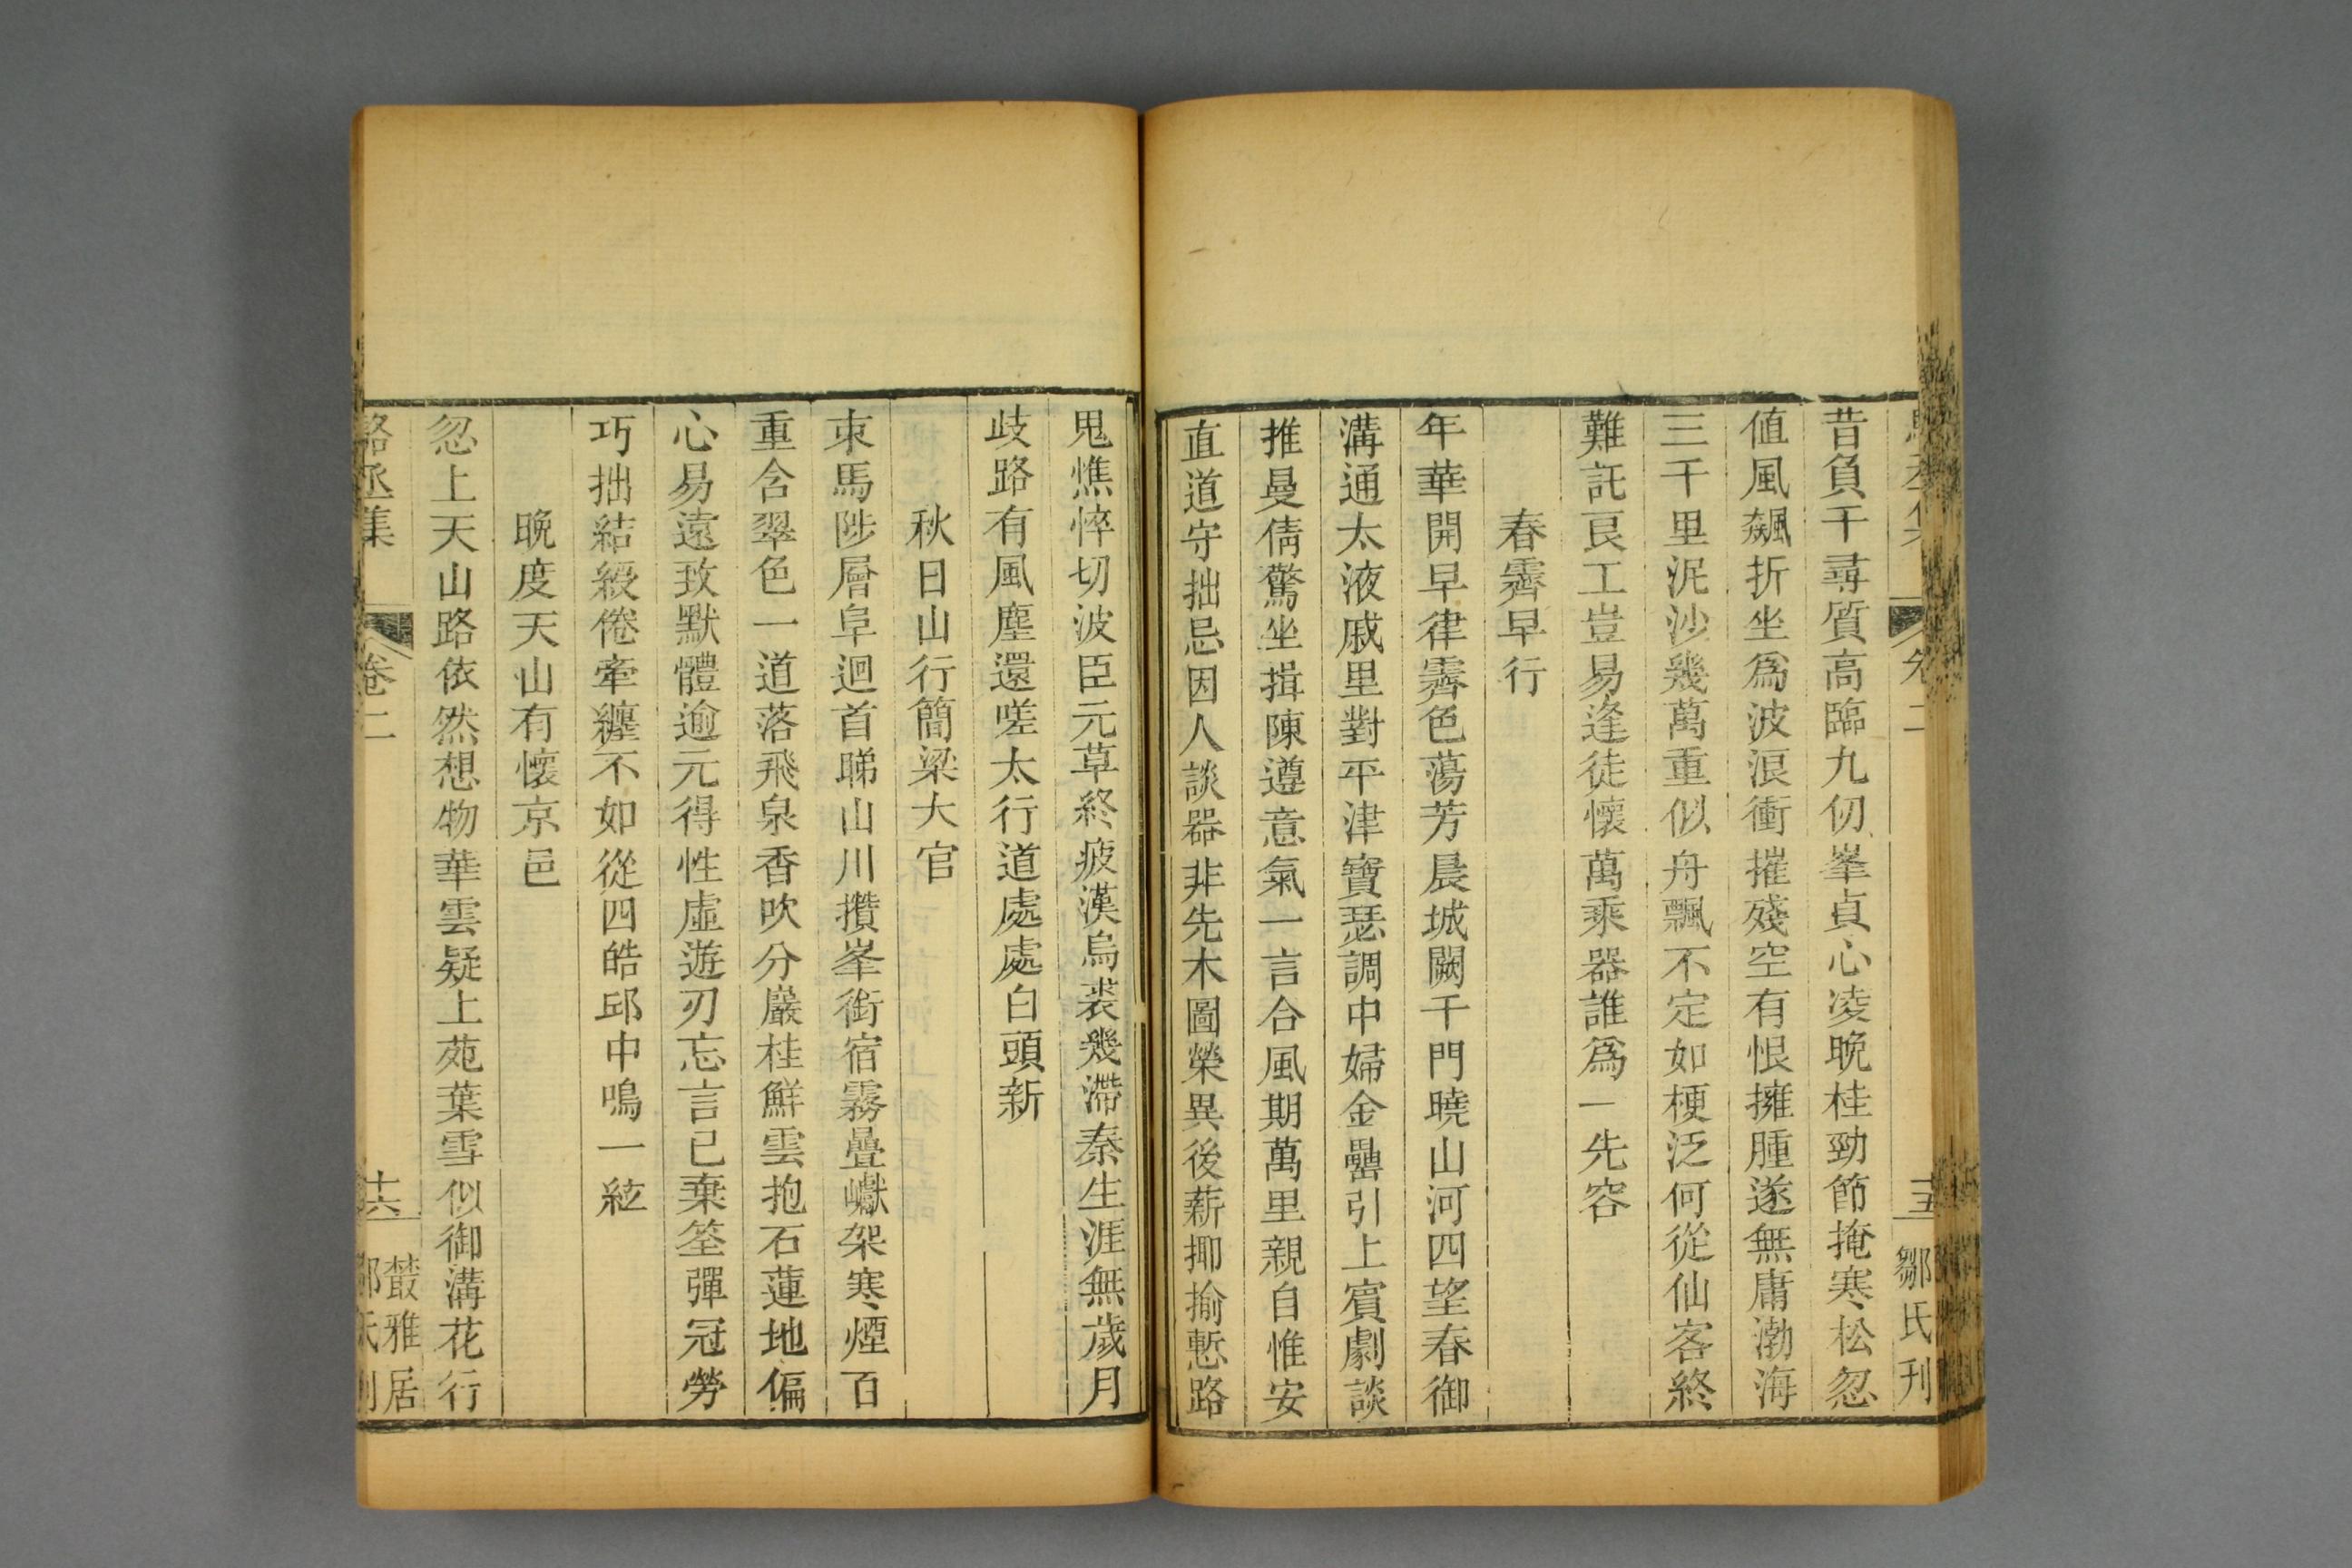 卷二
十五
鄒氏刊
昔負千尋質高臨九仞峯貞心凌晚桂勁節掩寒松忽
值風飆折坐爲波浪衝摧殘空有恨擁腫遂無庸渤海
三千里泥沙幾萬重似舟飄不定如梗泛何從仙客終
難託良工豈易逢徒懷萬乘器誰爲一先容
春霽早行
年華開早律霽色蕩芳晨城闕千門曉山河四望春御
溝通太液戚里對平津寶瑟調中婦金罍引上賓劇談
推曼倩驚坐揖陳遵意氣一言合風期萬里親自惟安
直道守拙忌因人談器非先木圖榮異後薪揶揄慙路
鬼憔悴切波臣元草終疲漢烏裘幾滯秦生涯無歲月
歧路有風塵還嗟太行道處處白頭新
秋日山行簡梁大官
束馬陟層阜迴首睇山川攢峯銜宿霧疊巘架寒煙百
重含翠色一道落飛泉香吹分巖桂鮮雲抱石蓮地偏
心易遠致默體逾元得性虛遊刃忘言已棄筌彈冠勞
巧拙結綬倦牽纏不如從四皓邱中鳴一絃
晚度天山有懷京邑
忽上天山路依然想物華雲疑上苑葉雪似御溝花行
駱丞集
卷二
十六
叢雅居
鄒氏刊